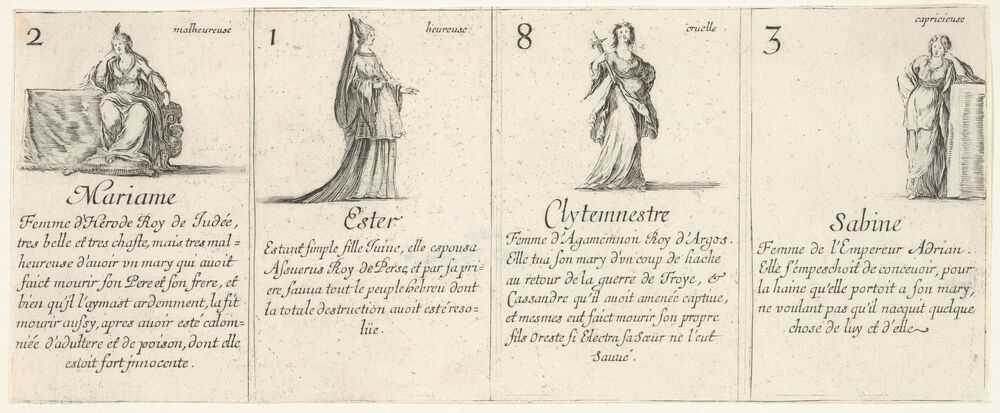 2
malheureuse
Mariame
Femme d'Herode Roy de Iudée,
tres belle et tres chaste, mais tres mal=
heureuse d'auoir vn mary qui auoit
faict mourir son Pere et son frere, et
bien qu'jl l'aymast ardemment, la fit
mourir aussy, apres auoir esté calom=
niée d'adultere et de poison, dont elle
estoit fort jnnocente.
1
heureuse
Ester
Estant simple fille Iuiue, elle espousa
Assuerus Roy de Perse, et par sa pri=
ere sauua tout le peuple hebreu dont
la totale destruction auoit esté reso=
lüe.
8
cruelle
Clytemnestre
Femme d'Agamemnon Roy d'Argos.
Elle tua son mary d'vn coup de hache
au retour de la guerre de Troye, &
Cassandre qu'il auoit amenée captiue,
et mesmes eut faict mourir son propre
fils Oreste si Electra sa sœur ne l'eut
sauué.
3
capricieuse
Sabine
Femme de l'Empereur Adrian.
Elle s'empeschoit de conceuoir, pour
la haine qu'elle portoit a son mary,
ne voulant pas qu'il nacquit quelque
chose de luy et d'elle